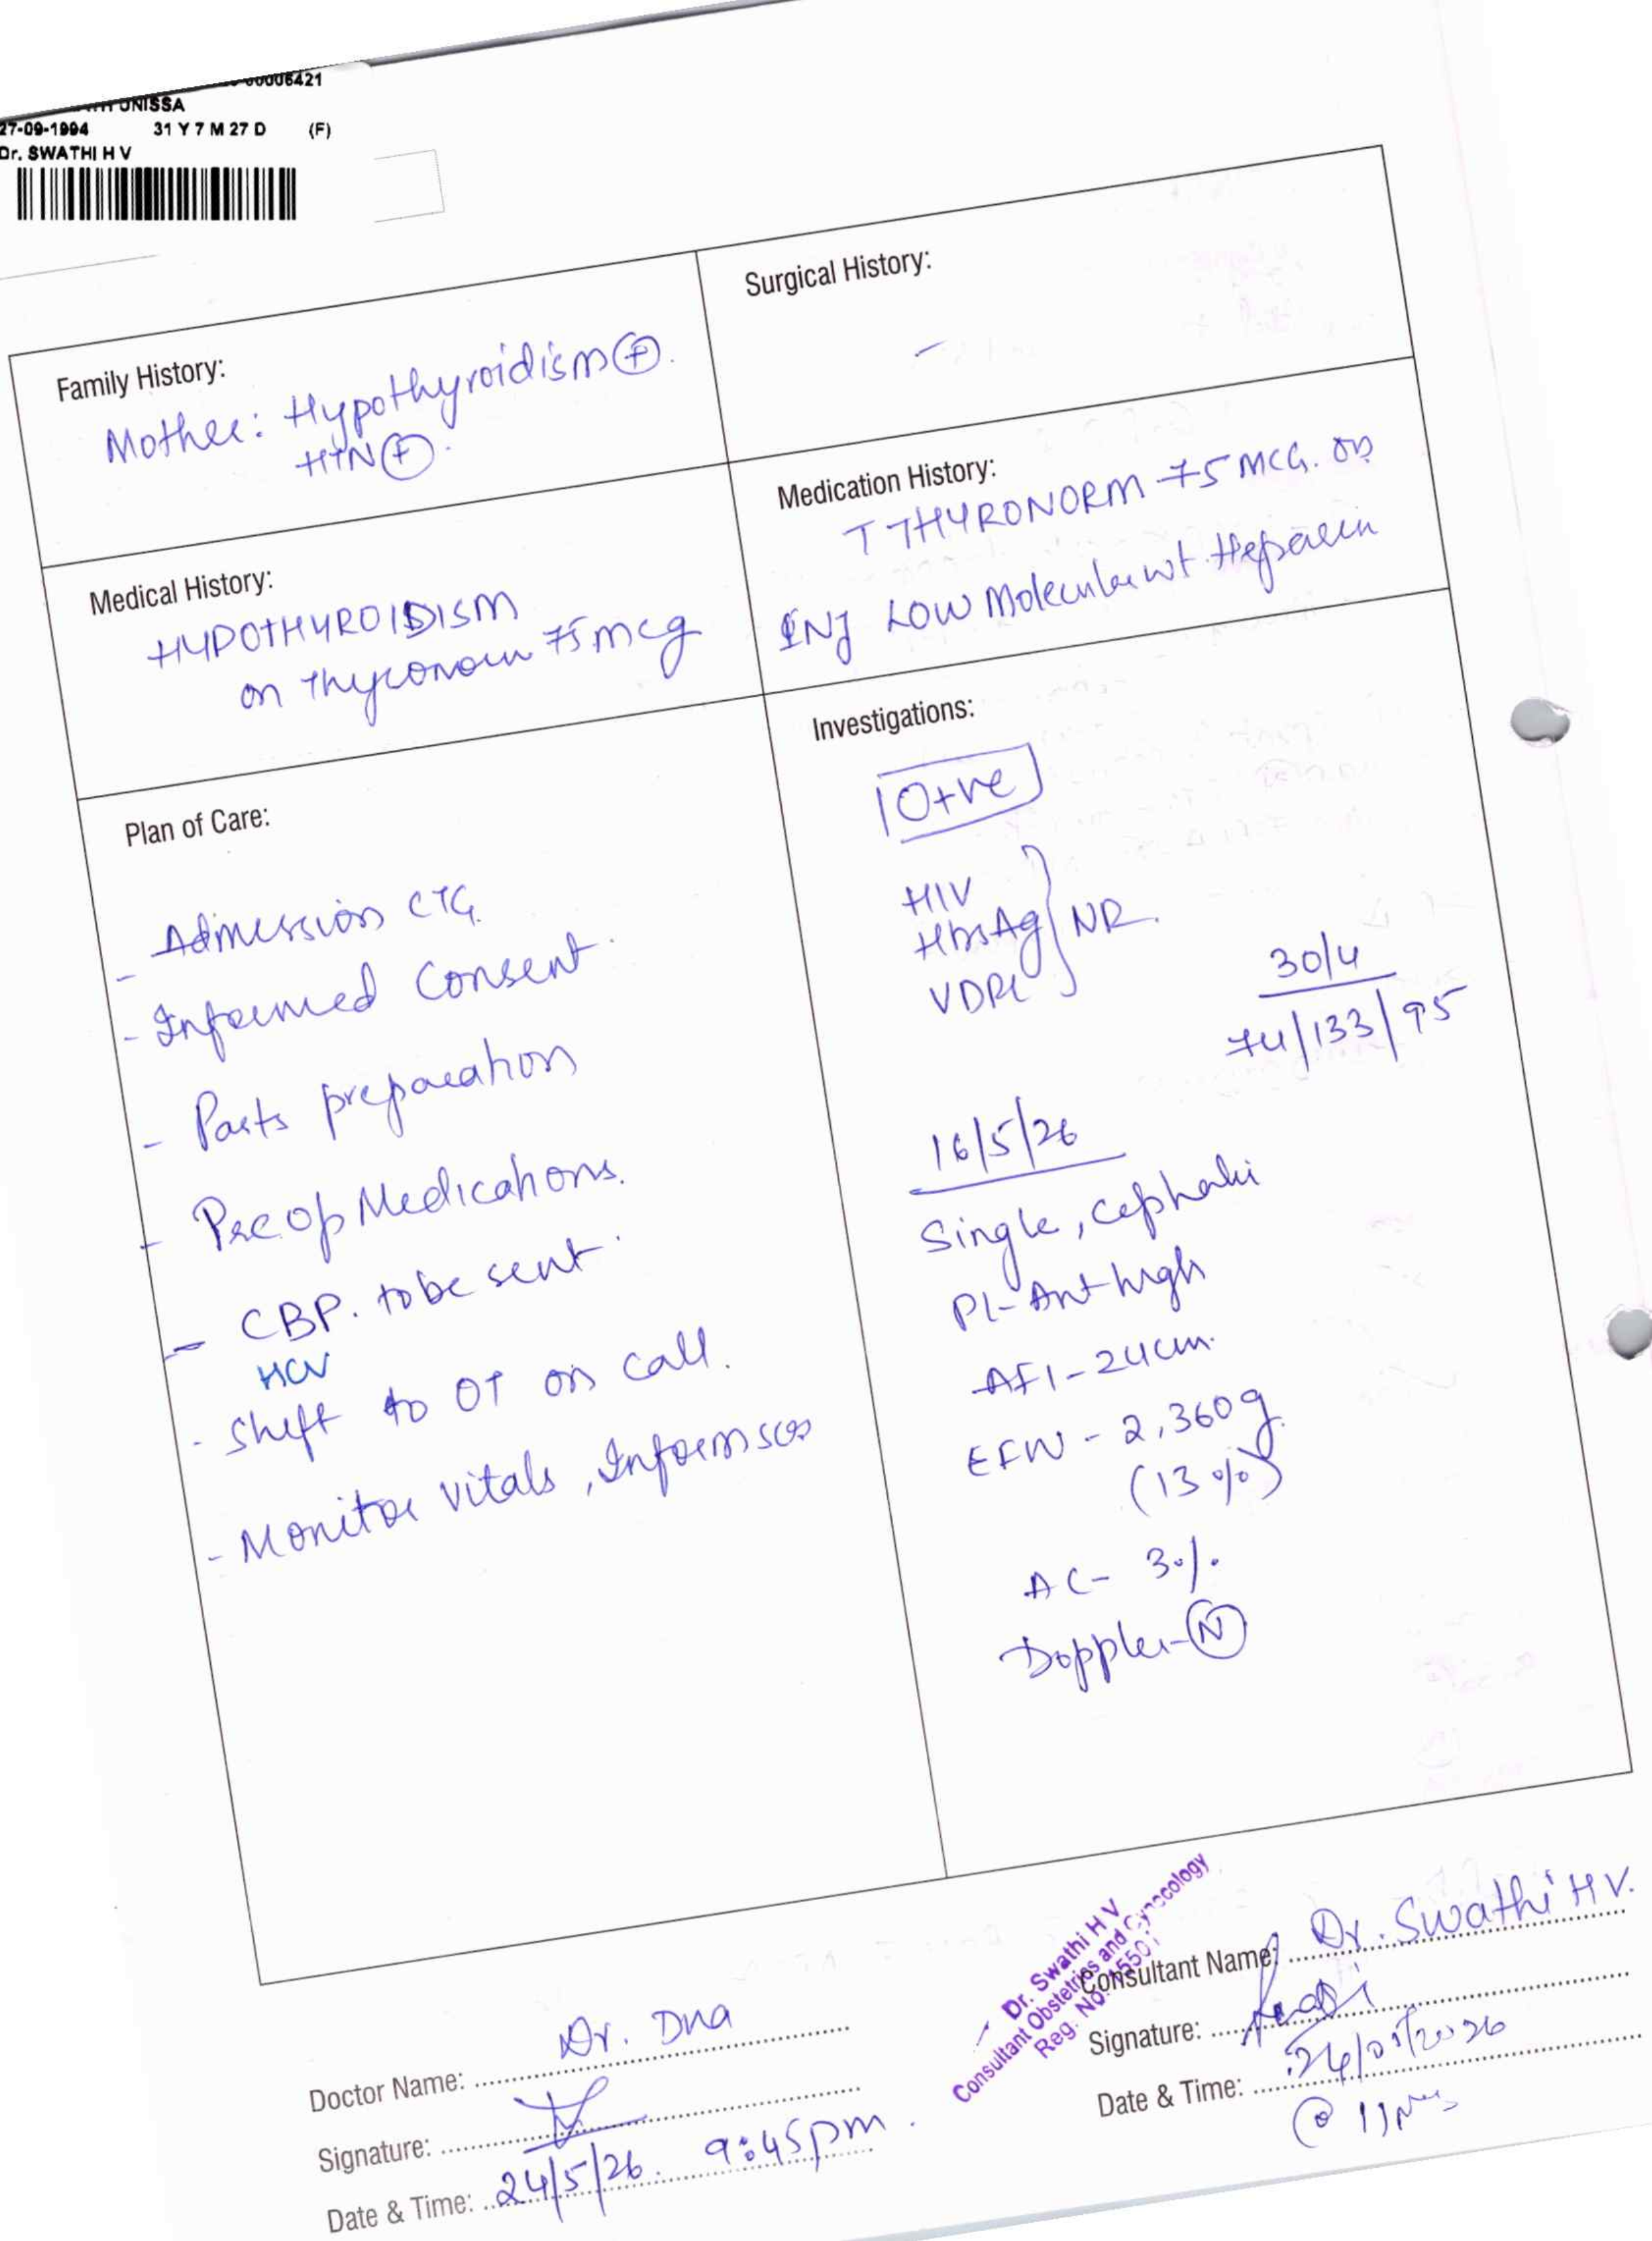 00006421
UNISSA
27-09-1994 31 Y 7 M 27 D (F)
Dr. SWATHI H V
Family History:
Mother: Hypothyroidism (+).
HTN (+).
Surgical History:
-
Medical History:
HYPOTHYROIDISM
on Thyronorm 75 mcg
Medication History:
T THYRONORM 75 MCG. OD
INJ LOW Molecular wt. Heparin
Plan of Care:
- Admission CTG.
- Informed Consent.
- Parts preparation
- Preop Medications.
- CBP. to be sent.
HCV
- Shift to OT on call.
- Monitor vitals, Inform SOS
Investigations:
O+ve
HIV
HbsAg } NR.
VDRL
30/4
74/133/95
16/5/26
Single, cephalic
Pl- Ant high
AFI - 24cm.
EFW - 2,360g.
(13%)
AC - 3%.
Doppler - (N)
Doctor Name: Dr. Dna
Signature:
Date & Time: 24/5/26. 9:45pm.
Dr. Swathi H V
Consultant Obstetrics and Gynecology
Reg. No.
Consultant Name: Dr. Swathi H V.
Signature:
Date & Time: 24/05/2026